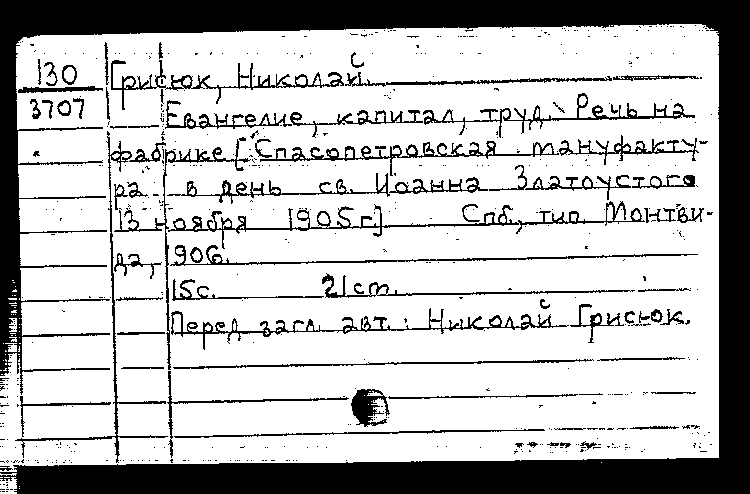 130 Грисюк, Николай.
3707 Евангелие, капитал, труд. Речь на
фабрике [Спасопетровская мануфакту-
ра в день св. Иоанна Златоустого
13 ноября 1905 г.] Спб., тип. Монтви-
да, 1906.
15с. 21 cm.
Перед загл. авт.: Николай Грисюк.